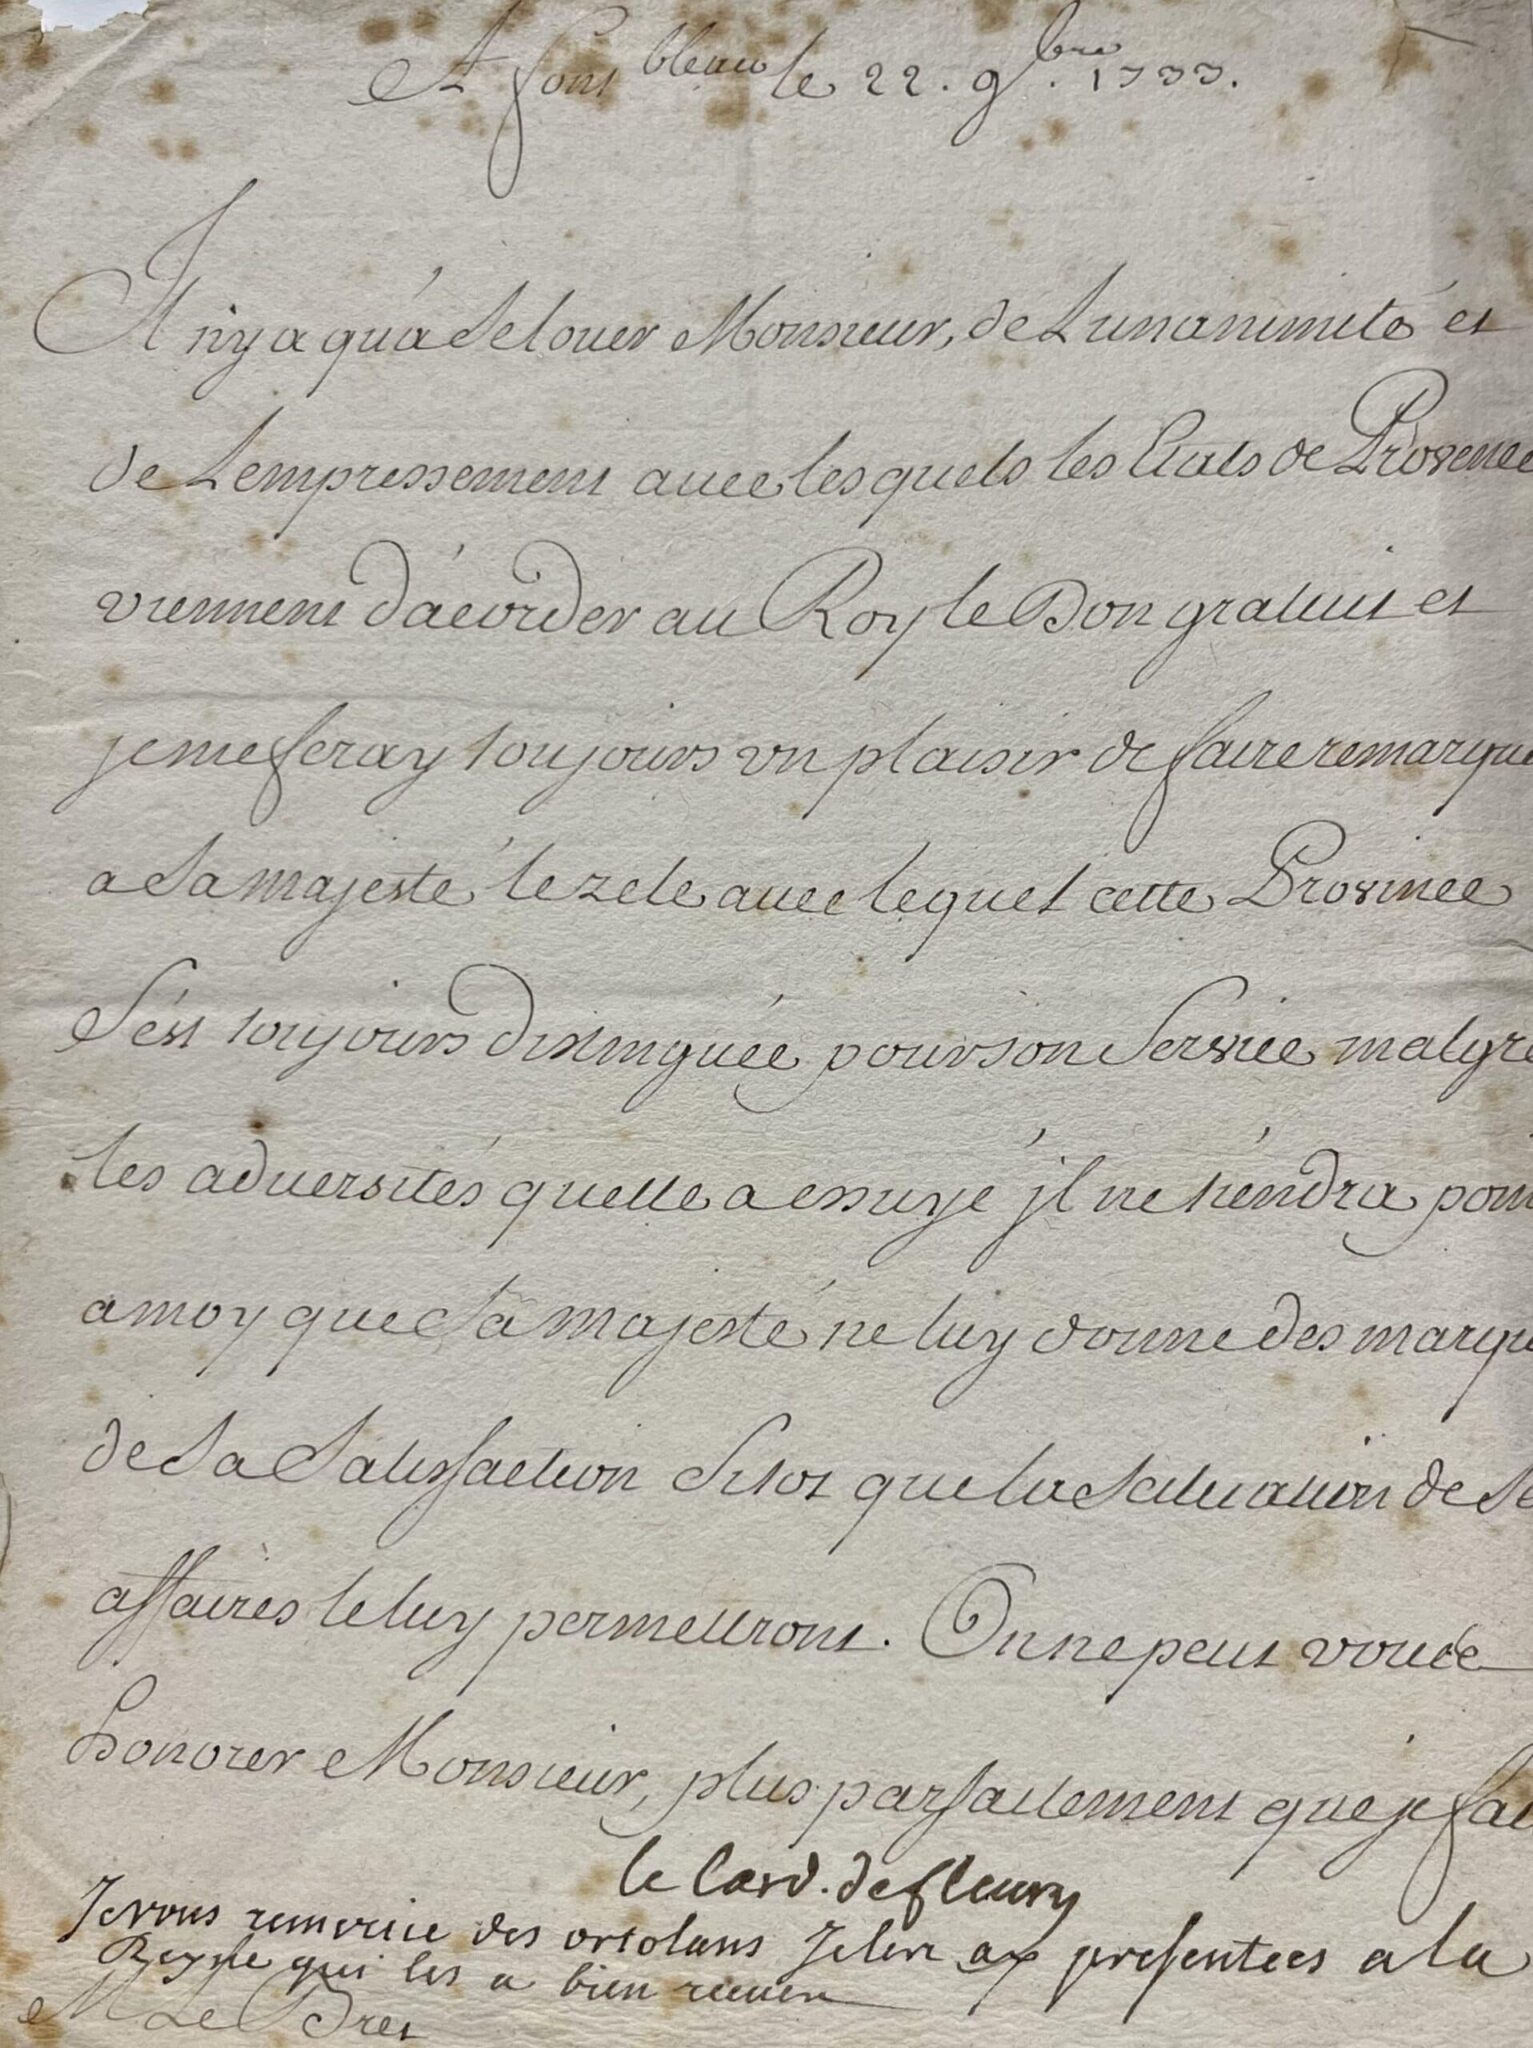 A font bleau le 22. 9.bre 1733.
Il n'y a qu'a Se louer Monsieur, de L'unanimité et
de L'empressement avec lesquels les Etats de Provence
viennent d'acorder au Roy le Don gratuit et
je me feray toujours un plaisir de faire remarque
a Sa majesté le zele avec lequel cette Province
S'est toujours distinguée pour son Service malgré
les adversités quelle a essuyé jl ne tiendra poin
a moy que Sa majesté ne luy donne des marqu
de Sa Satisfaction Sitot que la Situation de Se
affaires le luy permettront. On ne peut vous
honorer Monsieur, plus parfaitement que je fai
le Card. de fleury
Je vous remercie des ortolans Je les ay presentees a la
Reyne qui les a bien receu
M Le Bret